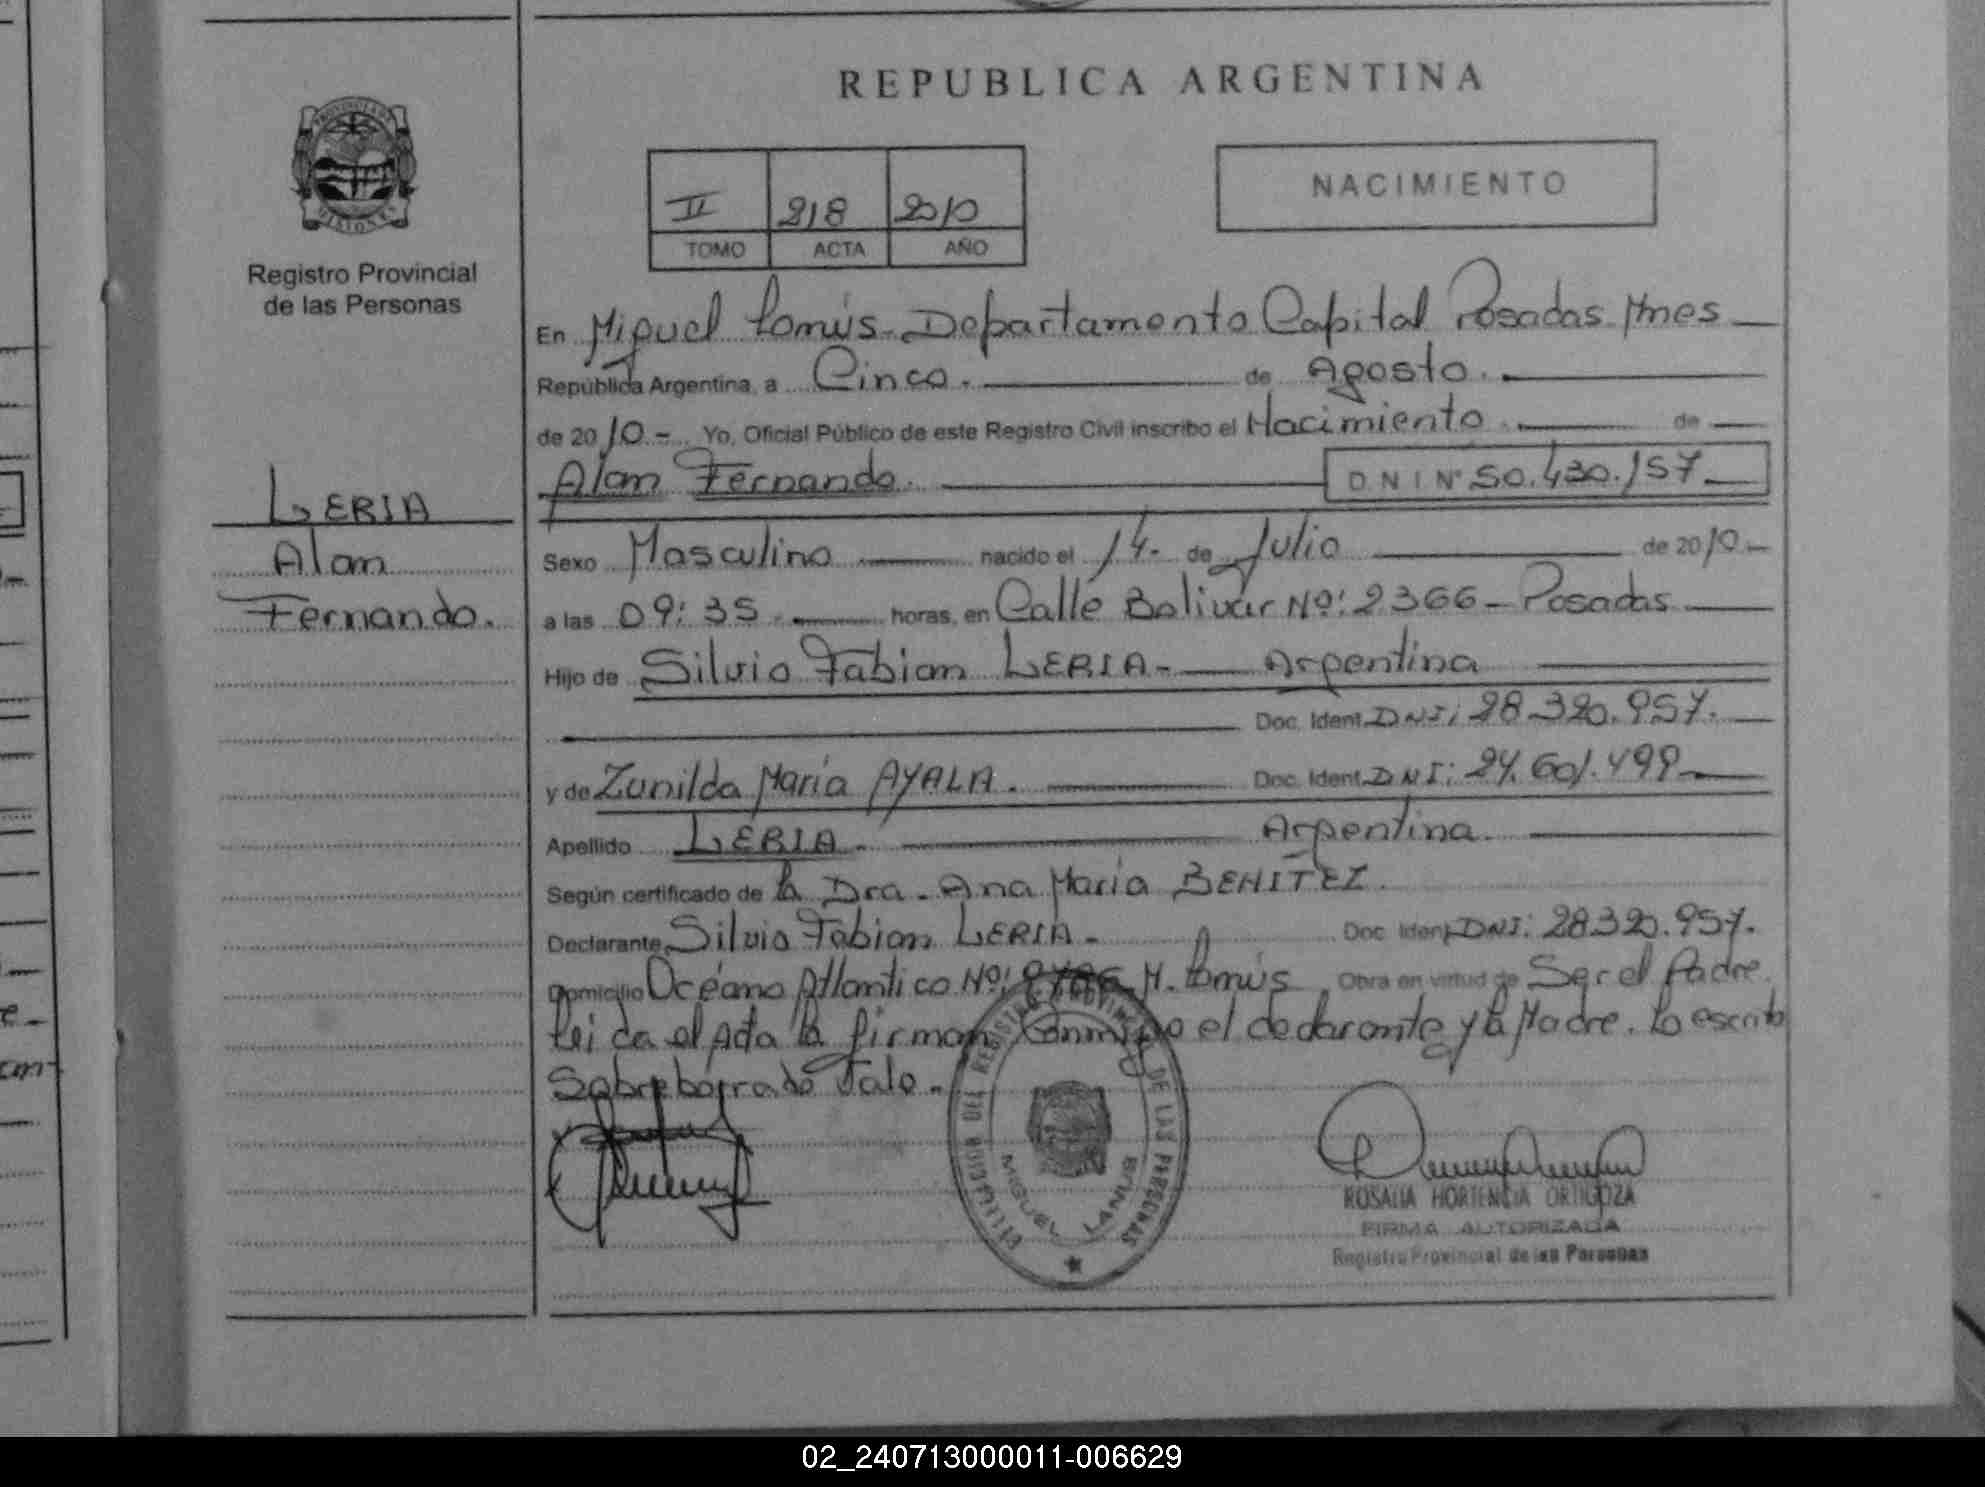 REPUBLICA ARGENTINA
PROVINCIA DE
MISIONES
Registro Provincial
de las Personas
II 218 2010
TOMO ACTA AÑO
NACIMIENTO
En Miguel Lanús - Departamento Capital Posadas Mnes
República Argentina, a Cinco. de Agosto.
de 2010.- Yo, Oficial Público de este Registro Civil inscribo el Nacimiento de
Alan Fernando. D N I Nº 50.430.157
LERIA
Alan
Fernando.
Sexo Masculino nacido el 14. de Julio de 2010.-
a las 09:35 horas, en Calle Bolivar Nº: 2366 - Posadas
Hijo de Silvio Fabian LERIA - Argentina
Doc. Ident. DNI: 28.320.957.
y de Zunilda María AYALA. Doc. Ident. DNI: 24.601.499
Apellido LERIA. Argentina.
Según certificado de la Dra. Ana María BENITEZ.
Declarante Silvio Fabian LERIA - Doc. Ident. DNI: 28.320.957.
Domicilio Océano Atlantico Nº: M. Lanús Obra en virtud de Ser el Padre.
Leida el Acta la firman Conmigo el declarante y la Madre. Lo escrito
Sobreborrado Vale.
DEL REGISTRO PROVINCIAL DE LAS PERSONAS
MIGUEL LANUS
ROSALIA HORTENCIA ORTIGOZA
FIRMA AUTORIZADA
Registro Provincial de las Personas
02_240713000011-006629